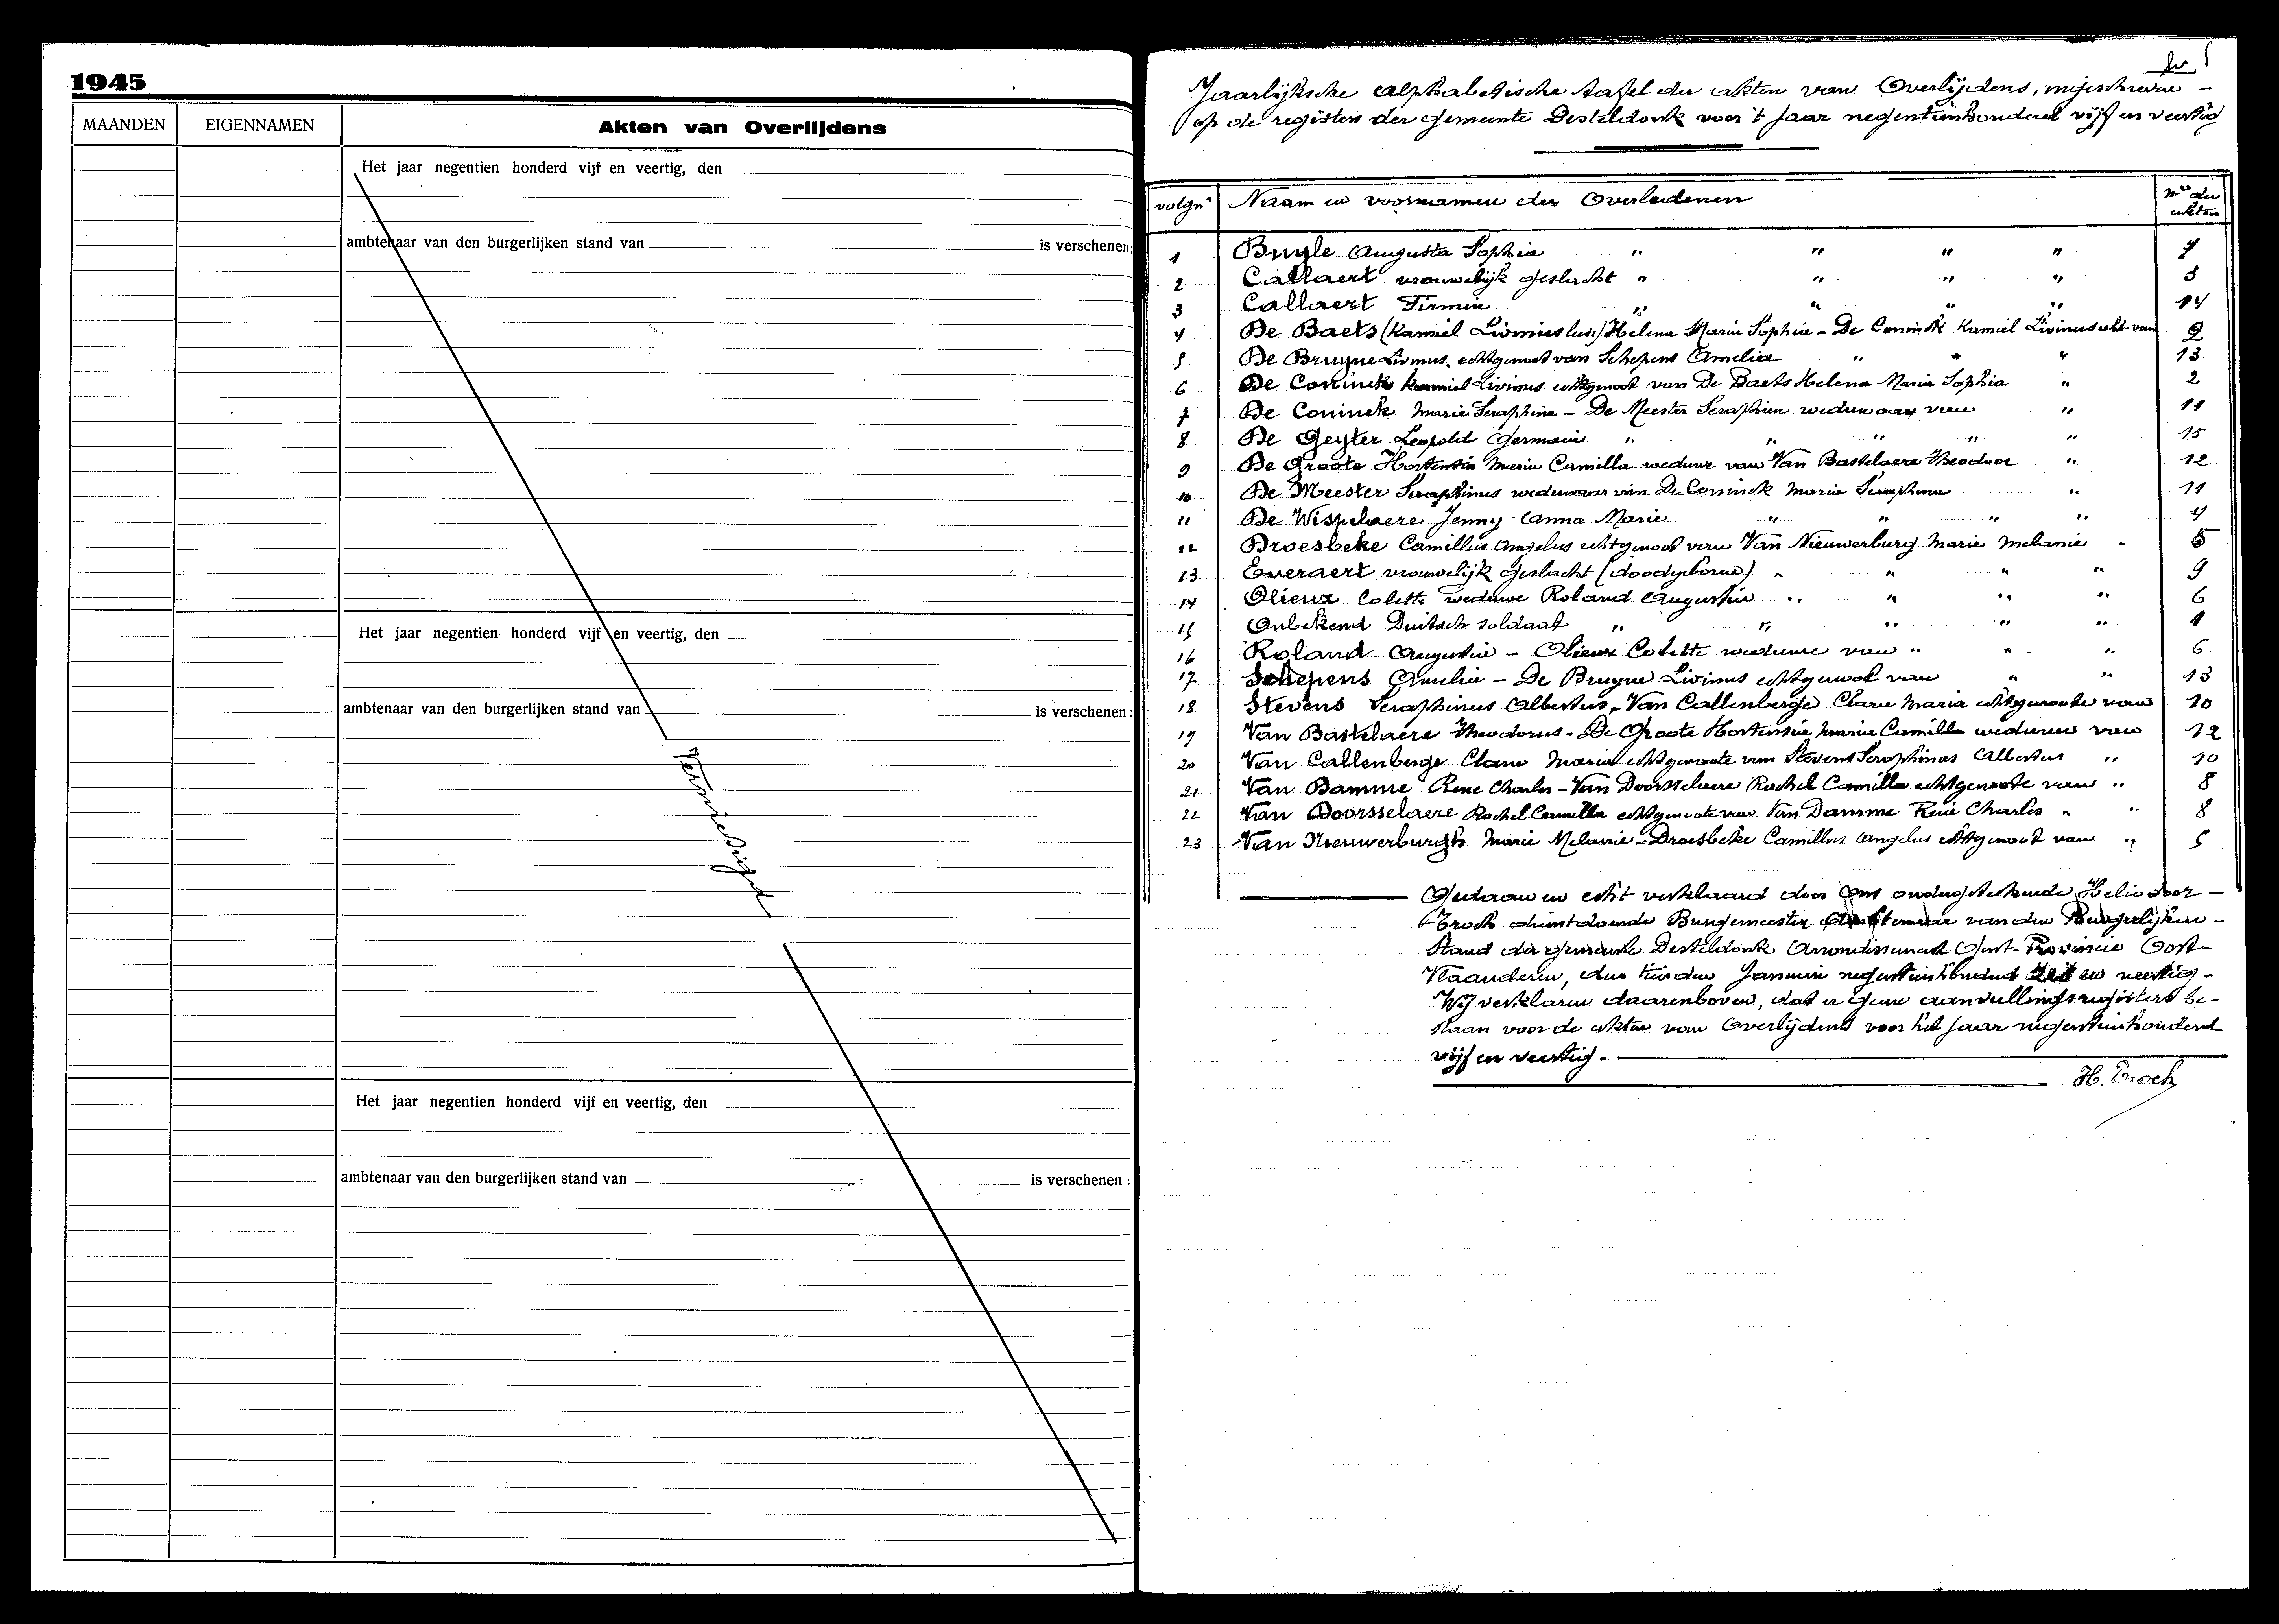 1945
MAANDEN EIGENNAMEN Akten van Overlijdens
Het jaar negentien honderd vijf en veertig, den
ambtenaar van den burgerlijken stand van is verschenen:
Het jaar negentien honderd vijf en veertig, den
ambtenaar van den burgerlijken stand van is verschenen:
Vernietigd
Het jaar negentien honderd vijf en veertig, den
ambtenaar van den burgerlijken stand van is verschenen:
Jaarlijksche alphabetische tafel der akten van Overlijdens, ingeschreven -
op de registers der gemeente Desteldonk voor 't jaar negentienhonderd vijf en veertig
volgnr Naam en voornamen der Overledenen Nrs der akten
1 Bruyle Augusta Sophia " " " " 7
2 Callaert vrouwelijk geslacht " " " " 3
3 Callaert Firmin " " " " 14
4 De Baets (Kamiel Livinus) Helena Maria Sophia - De Coninck Kamiel Livinus echt. van 2
5 De Bruyne Livinus, echtgenoot van Schepens Amelia " " " 13
6 De Coninck Kamiel Livinus echtgenoot van De Baets Helena Maria Sophia " 2
7 De Coninck Marie Seraphina - De Meester Seraphien weduwaar van " 11
8 De Geyter Leopold Germain " " " " " 15
9 De Groote Hortensia Maria Camilla weduwe van Van Bastelaere Theodoor " 12
10 De Meester Seraphinus weduwaar van De Coninck Maria Seraphina " 11
11 De Wispelaere Jenny Anna Marie " " " " 4
12 Droesbeke Camillus Angelus echtgenoot van Van Nieuwerburg Marie Melanie " 5
13 Everaert vrouwelijk geslacht (doodgeboren) " " " " 9
14 Olieux Colette weduwe Roland Augustin " " " " 6
15 Onbekend Duitsch soldaat " " " " " 1
16 Roland Augustin - Olieux Colette weduwe van " " " 6
17 Schepens Amelia - De Bruyne Livinus echtgenoot van " " 13
18 Stevens Seraphinus Albertus, Van Callenberge Clara Maria echtgenoote van 10
19 Van Bastelaere Theodorus - De Groote Hortensia Maria Camilla weduwe van 12
20 Van Callenberge Clara Maria echtgenoote van Stevens Seraphinus Albertus " 10
21 Van Damme Rene Charles - Van Doorsselaere Rachel Camilla echtgenoote van " 8
22 Van Doorsselaere Rachel Camilla echtgenoote van Van Damme René Charles " " 8
23 Van Nieuwerburgh Marie Melanie - Droesbeke Camillus Angelus echtgenoot van " 5
Gedaan en echt verklaard door Ons ondergeteekende Heliodoor -
Troch dienstdoende Burgemeester Ambtenaar van den Burgerlijken -
Stand der gemeente Desteldonk Arrondissement Gent - Provincie Oost -
Vlaanderen, den tienden Januari negentienhonderd zes en veertig -
Wij verklaren daarenboven, dat er geen aanvullingsregisters be-
staan voor de akten van Overlijdens voor het jaar negentienhonderd
vijf en veertig.
H. Troch